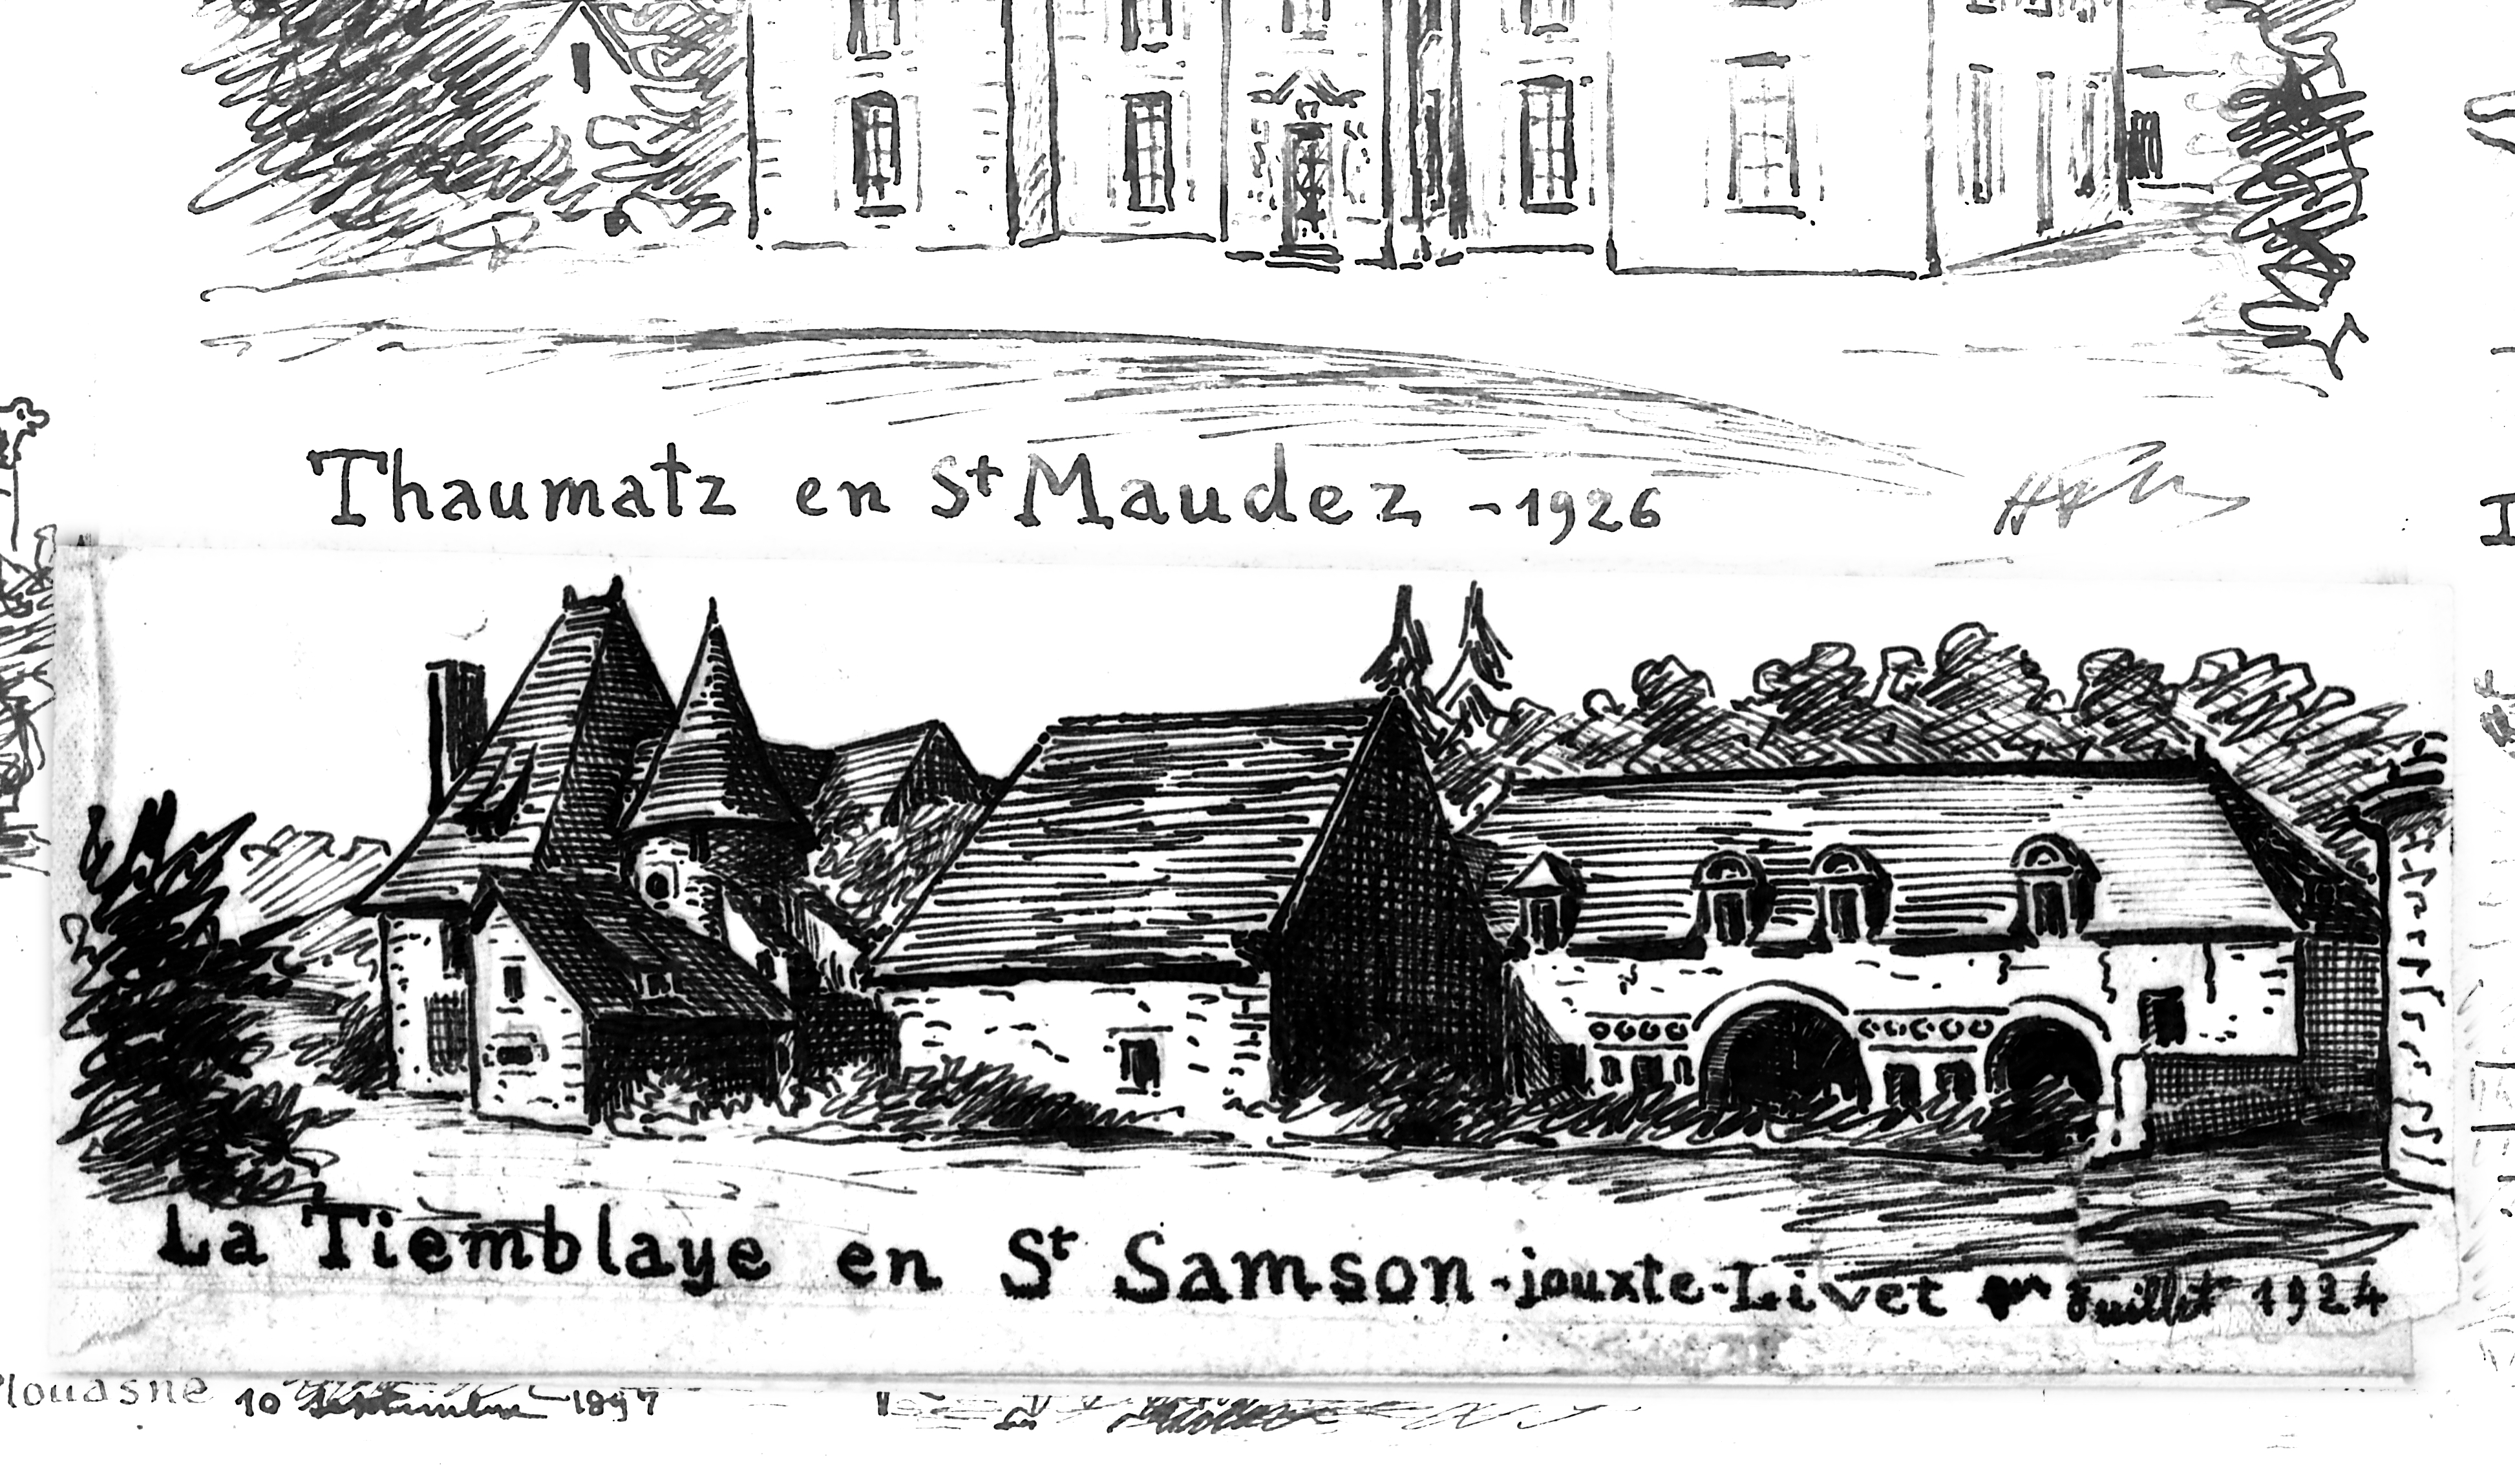 Thaumatz en St Maudez - 1926
La Tiemblaye en St Samson-jouxte-Livet 1er Juillet 1924
Plouasne 10 Septembre 1897